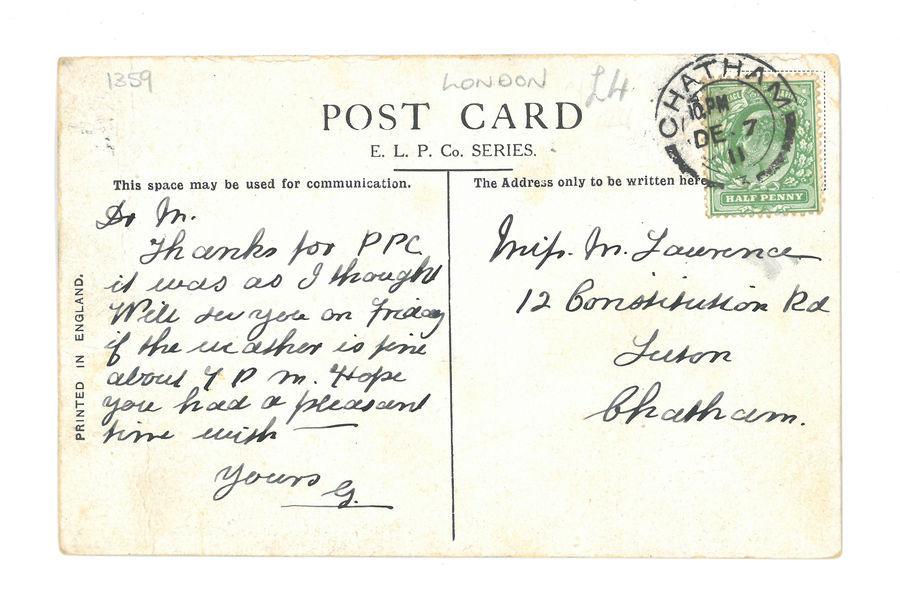 1359
LONDON
£4
POST CARD
E. L. P. Co. SERIES.
This space may be used for communication.
The Address only to be written here
CHATHAM
10. PM
DE. 7
11
3
HALF PENNY
PRINTED IN ENGLAND.
Dr M.
Thanks for PPC
it was as I thought
Will see you on Friday
if the weather is fine
about 7 P m. Hope
you had a pleasant
time with ——
Yours
G.
Miss. M. Lawrence
12 Constitution Rd
Luton
Chatham.